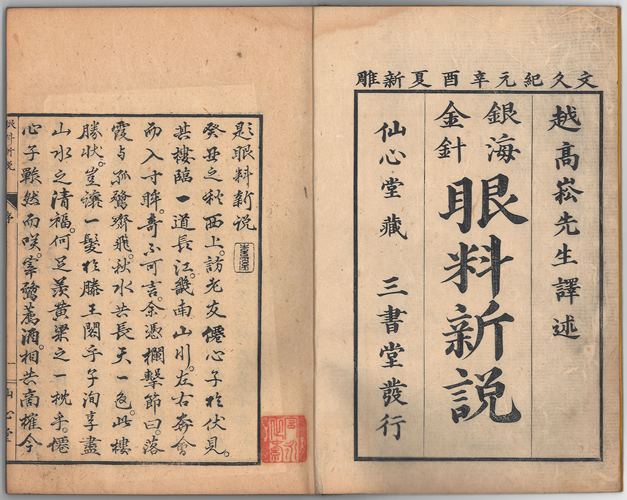 文久紀元辛酉夏新雕
越高崧先生譯述
銀海
金針
眼科新説
仙心堂藏 三書堂發行
題眼科新説
癸丑之秋西上。訪老友僊心子於伏見。
其樓臨一道長江。畿南山川。左右奔會
而入寸眸。奇不可言。余憑欄擊節曰。落
霞与孤鶩齊飛。秋水共長天一色。此樓
勝狀。豈讓一髮於滕王閣乎。子洵享盡
山水之清福。何足羨黃粱之一枕乎。僊
心子囅然而咲。宰鷺薦酒。相共商榷今
序 一 仙心堂